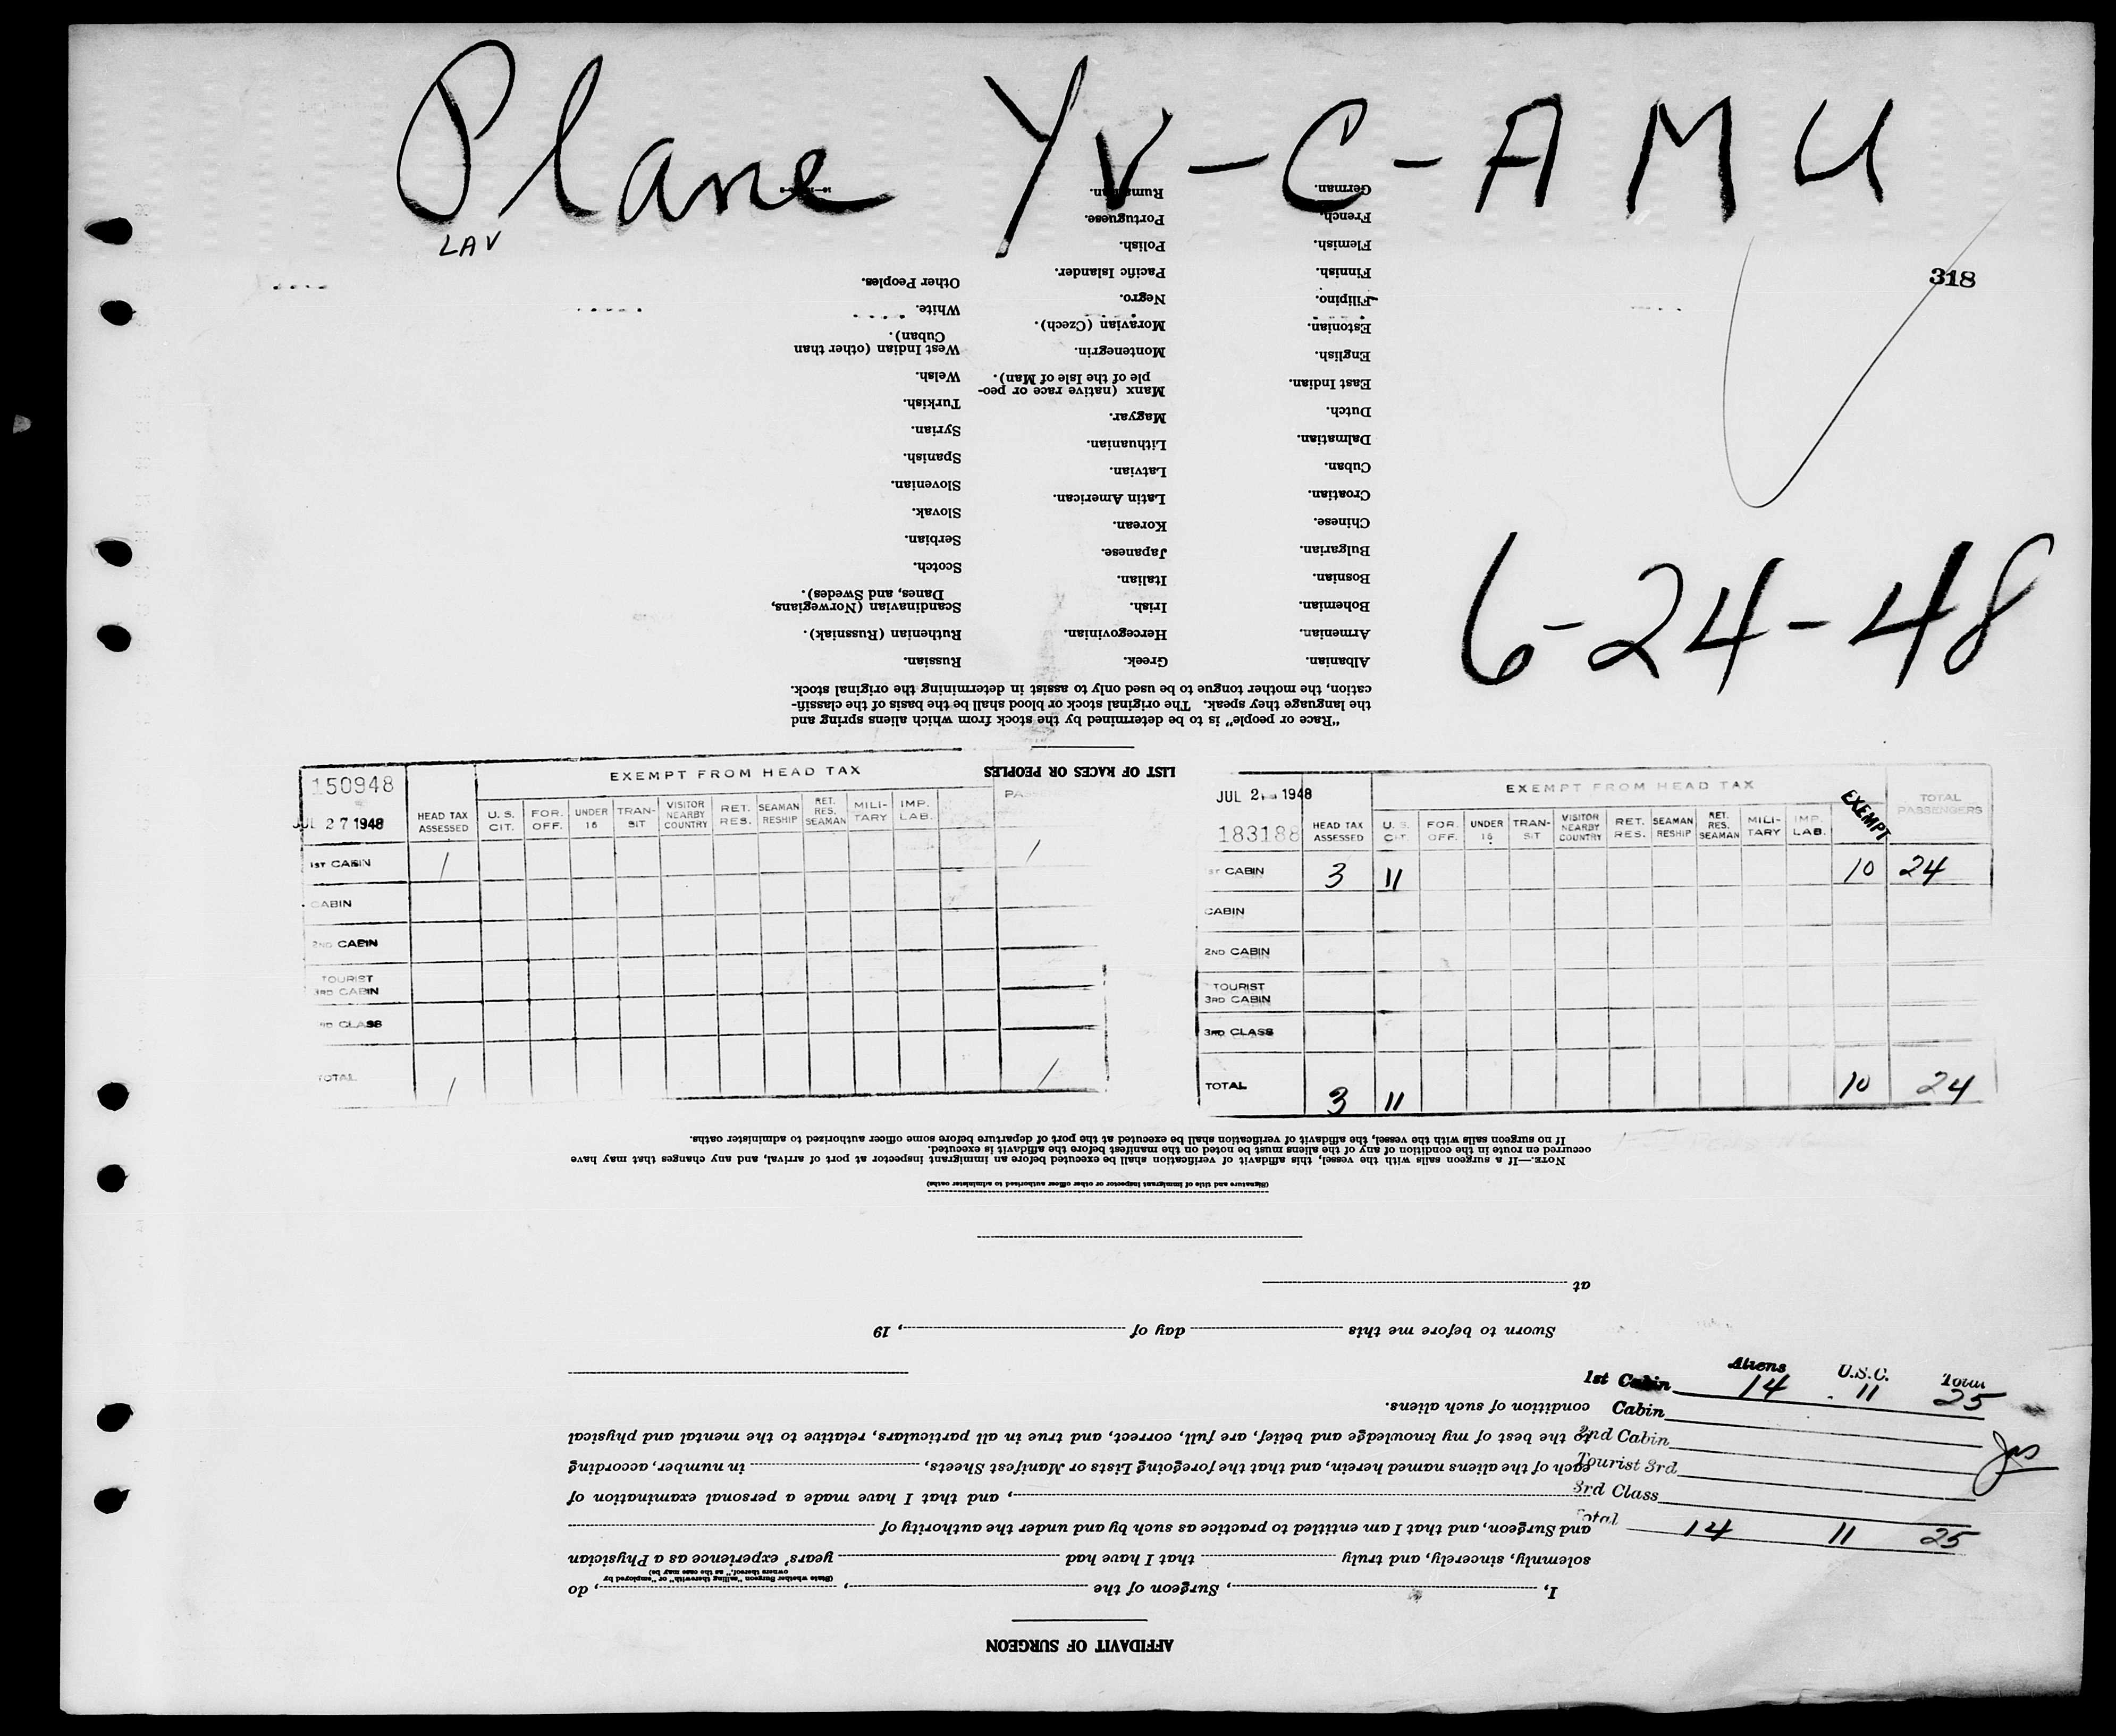 Plane YV-C-AMU
LAV
318
6-24-48
150948
JUL 27 1948
HEAD TAX ASSESSED
EXEMPT FROM HEAD TAX
U. S. CIT.
FOR. OFF.
UNDER 16
TRAN-SIT
VISITOR NEARBY COUNTRY
RET. RES.
SEAMAN RESHIP
RET. RES. SEAMAN
MILI-TARY
IMP. LAB.
1ST CABIN 1 1
CABIN
2ND CABIN
TOURIST
3RD CABIN
RD CLASS
TOTAL 1 1
JUL 2 1948
183188
HEAD TAX ASSESSED
EXEMPT FROM HEAD TAX
U. S. CIT.
FOR. OFF.
UNDER 16
TRAN-SIT
VISITOR NEARBY COUNTRY
RET. RES.
SEAMAN RESHIP
RET. RES. SEAMAN
MILI-TARY
IMP. LAB.
EXEMPT
TOTAL PASSENGERS
1ST CABIN 3 11 10 24
CABIN
2ND CABIN
TOURIST
3RD CABIN
3RD CLASS
TOTAL 3 11 10 24
Aliens U.S.C. Total
1st Cabin 14 11 25
Cabin
2nd Cabin
Tourist 3rd
3rd Class
Total 14 11 25
AFFIDAVIT OF SURGEON
I, , Surgeon of the , , do
(State whether Surgeon "sailing therewith" or "employed by
owners thereof," as the case may be)
solemnly, sincerely, and truly that I have had years' experience as a Physician
and Surgeon, and that I am entitled to practice as such by and under the authority of
, and that I have made a personal examination of
each of the aliens named herein, and that the foregoing Lists or Manifest Sheets, in number, according
to the best of my knowledge and belief, are full, correct, and true in all particulars, relative to the mental and physical
condition of such aliens.
Sworn to before me this day of , 19
at
(Signature and title of immigrant inspector or other officer authorized to administer oaths)
NOTE.—If a surgeon sails with the vessel, this affidavit of verification shall be executed before an immigrant inspector at port of arrival, and any changes that may have
occurred en route in the condition of any of the aliens must be noted on the manifest before the affidavit is executed.
If no surgeon sails with the vessel, the affidavit of verification shall be executed at the port of departure before some officer authorized to administer oaths.
LIST OF RACES OR PEOPLES
"Race or people" is to be determined by the stock from which aliens spring and
the language they speak. The original stock or blood shall be the basis of the classifi-
cation, the mother tongue to be used only to assist in determining the original stock.
Albanian.
Armenian.
Bohemian.
Bosnian.
Bulgarian.
Chinese.
Croatian.
Cuban.
Dalmatian.
Dutch.
East Indian.
English.
Estonian.
Filipino.
Finnish.
Flemish.
French.
German.
Greek.
Hercegovinian.
Irish.
Italian.
Japanese.
Korean.
Latin American.
Latvian.
Lithuanian.
Magyar.
Manx (native race or peo-
ple of the Isle of Man).
Montenegrin.
Moravian (Czech).
Negro.
Pacific Islander.
Polish.
Portuguese.
Rumanian.
Russian.
Ruthenian (Russniak).
Scandinavian (Norwegians,
Danes, and Swedes).
Scotch.
Serbian.
Slovak.
Slovenian.
Spanish.
Syrian.
Turkish.
Welsh.
West Indian (other than
Cuban).
White.
Other Peoples.